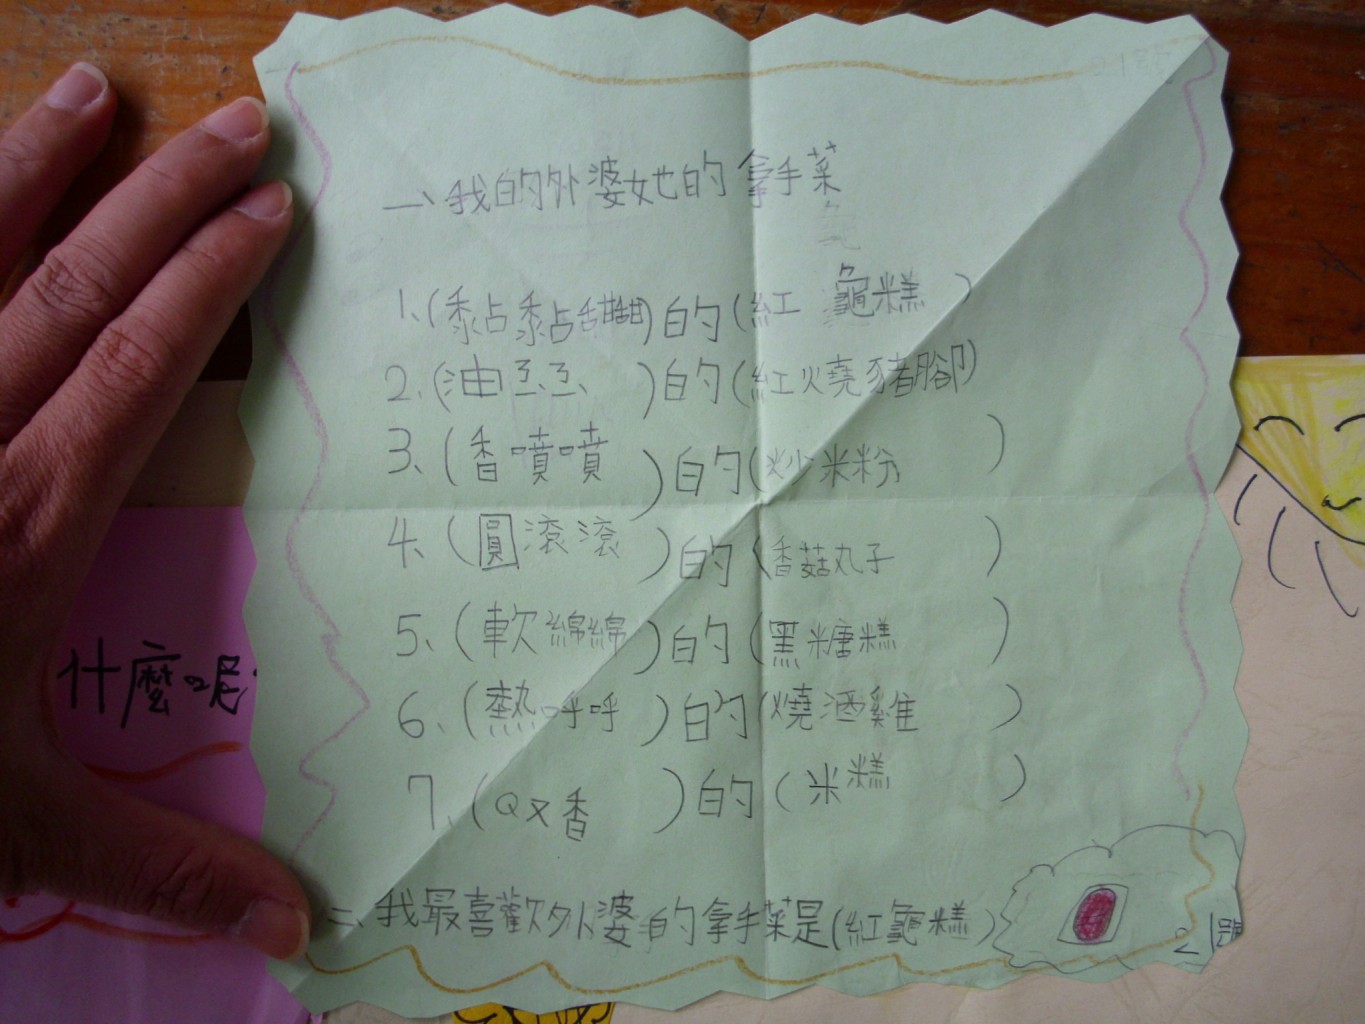 一、我的外婆她的拿手菜
1.(黏黏甜甜)的(紅龜糕)
2.(油亮亮)的(紅燒豬腳)
3.(香噴噴)的(炒米粉)
4.(圓滾滾)的(香菇丸子)
5.(軟綿綿)的(黑糖糕)
6.(熱呼呼)的(燒酒雞)
7.(Q又香)的(米糕)
二、我最喜歡外婆的拿手菜是(紅龜糕)
21號
什麼呢